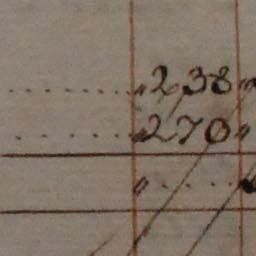 ........ „ 238 „
........ „ 270 „
„ ........ „